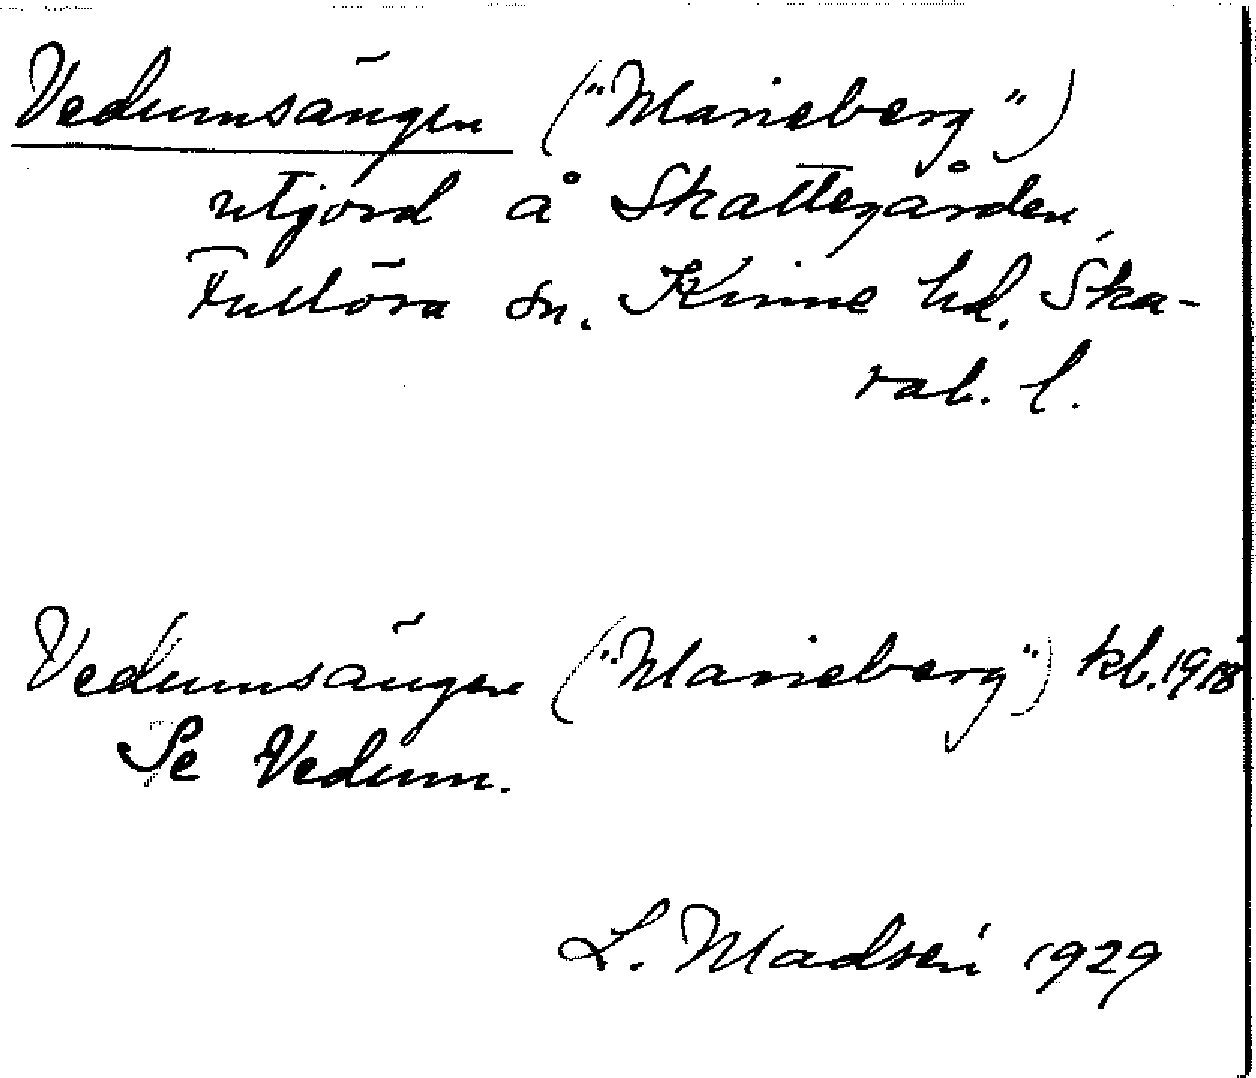 Vedumsängen ("Marieberg")
utjord å Skattegården,
Fullösa sn. Kinne hd. Ska-
rab. l.
Vedumsängen ("Marieberg") kb. 1918
Se Vedum.
L. Madsén 1929